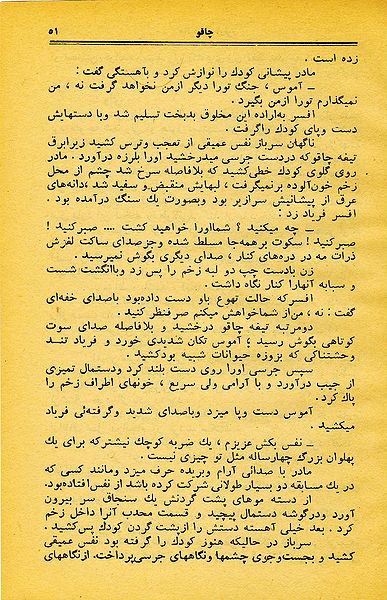 چاقو
۵۱
زده است .
مادر پیشانی کودك را نوازش کرد و بآهستگی گفت :
ــ آموس ، جنگ تورا دیگر ازمن نخواهد گرفت نه ، من
نمیگذارم تورا ازمن بگیرد .
افسر به‌اراده این مخلوق بدبخت تسلیم شد وبا دستهایش
دست وپای کودك راگرفت .
ناگهان سرباز نفس عمیقی از تعجب وترس کشید زیرابرق
تیغه چاقوکه دردست جرسی میدرخشید اورا بلرزه درآورد . مادر
روی گلوی کودك خطی‌کشید که بلافاصله سرخ شد چشم از محل
زخم خون‌آلوده برنمیگرفت ، لبهایش منقبض‌و سفید شد ،دانه‌های
عرق از پیشانیش سرازیر بود وبصورت یك سنگ درآمده بود .
افسر فریاد زد :
ــ چه میکنید ؟ شمااورا خواهید کشت .... صبرکنید !
صبرکنید ! سکوت برهمه‌جا مسلط شده وجزصدای ساکت لغزش
ذرات مه در دره‌های کنار ، صدای دیگری بگوش نمیرسید .
زن بادست چپ دو لبه زخم را پس زد وباانگشت شست
و سبابه آنهارا کنار نگاه داشت .
افسرکه حالت تهوع باو دست داده‌بود باصدای خفه‌ای
گفت : نه ، من‌از شماخواهش میکنم صرفنظر کنید .
دومرتبه تیغه چاقو درخشید و بلافاصله صدای سوت
کوتاهی بگوش رسید ؛ آموس تکان شدیدی خورد و فریاد تند
وحشتناکی که بزوزه حیوانات شبیه بودکشید .
سپس جرسی اورا روی دست بلند کرد ودستمال تمیزی
از جیب درآورد و با آرامی ولی سریع ، خونهای اطراف زخم را
پاك کرد .
آموس دست وپا میزد وباصدای شدید وگرفته‌ئی فریاد
میکشید .
ــ نفس بکش عزیزم ، یك ضربه کوچك نیشترکه برای یك
پهلوان بزرگ چهارساله مثل تو چیزی نیست .
مادر با صدائی آرام وبریده حرف میزد ومانند کسی که
در یك مسابقه دو بسیار طولانی شرکت کرده باشد از نفس‌افتاده‌بود.
از دسته موهای پشت گردنش یك سنجاق سر بیرون
آورد ودرگوشه دستمال پیچید و قسمت محدب آنرا داخل زخم
کرد . بعد خیلی آهسته دستش را ازپشت گردن کودك پس‌کشید .
سرباز در حالیکه هنوز کودك را گرفته بود نفس عمیقی
کشید و بجست‌وجوی چشمها ونگاههای جرسی‌پرداخت. ازنگاههای